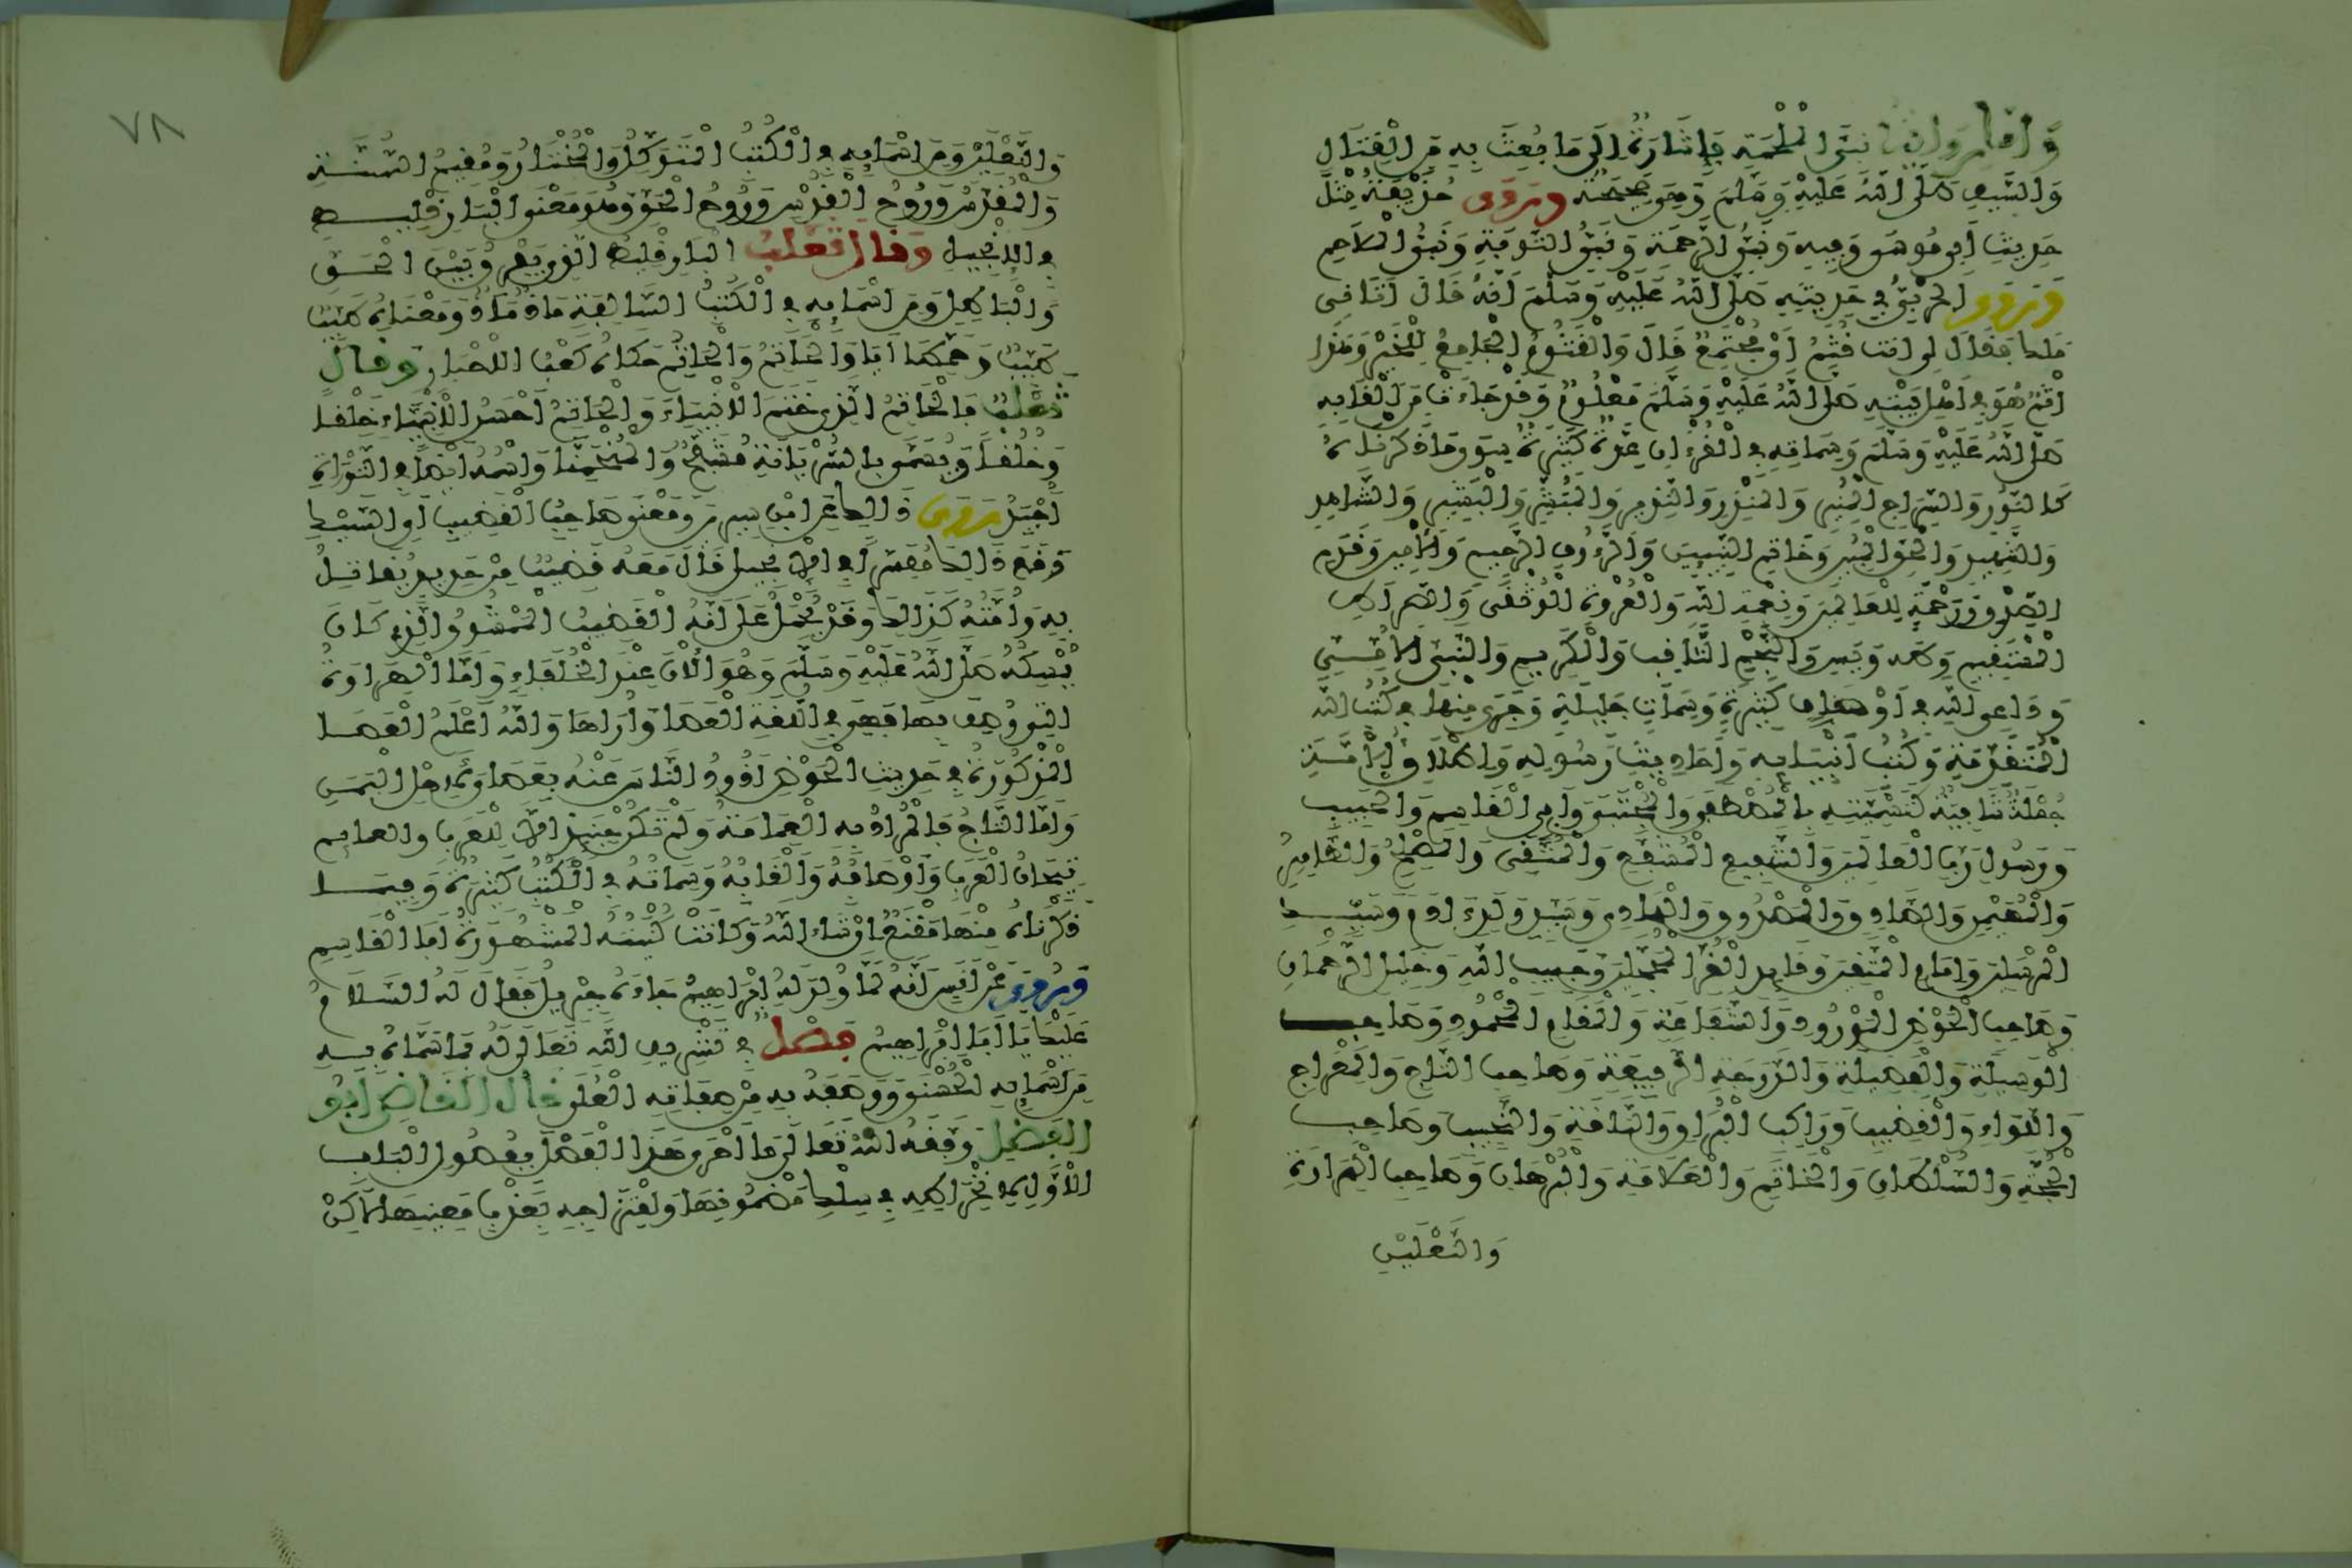 وَأَمَّا رِوَايَةُ نَبِيِّ الْمَلْحَمَةِ فَإِشَارَةٌ إِلَى مَا بُعِثَ بِهِ مِنَ الْقِتَالِ
وَالسَّيْفِ صَلَّى اللَّهُ عَلَيْهِ وَسَلَّمَ وَهِيَ صَحِيحَةٌ وَرَوَى حُذَيْفَةُ مِثْلَ
حَدِيثِ أَبِي مُوسَى وَفِيهِ وَنَبِيُّ الرَّحْمَةِ وَنَبِيُّ التَّوْبَةِ وَنَبِيُّ الْمَلَاحِمِ
وَرَوَى الْحَرْبِيُّ فِي حَدِيثِهِ صَلَّى اللَّهُ عَلَيْهِ وَسَلَّمَ أَنَّهُ قَالَ أَتَانِي
مَلَكٌ فَقَالَ لِي أَنْتَ قُثَمٌ أَيْ مُجْتَمِعٌ قَالَ وَالْقَثُومُ الْجَامِعُ لِلْخَيْرِ وَهَذَا
اسْمٌ هُوَ فِي أَهْلِ بَيْتِهِ صَلَّى اللَّهُ عَلَيْهِ وَسَلَّمَ مَعْلُومٌ وَقَدْ جَاءَتْ مِنْ أَلْقَابِهِ
صَلَّى اللَّهُ عَلَيْهِ وَسَلَّمَ وَسِمَاتِهِ فِي الْقُرْءَانِ عِدَّةٌ كَثِيرَةٌ سِوَى مَا ذَكَرْنَاهُ
كَالنُّورِ وَالسِّرَاجِ الْمُنِيرِ وَالْمُنْذِرِ وَالنَّذِيرِ وَالْمُبَشِّرِ وَالْبَشِيرِ وَالشَّاهِدِ
وَالشَّهِيدِ وَالْحَقِّ الْمُبِينِ وَخَاتِمِ النَّبِيِّينَ وَالرَّءُوفِ الرَّحِيمِ وَالْأَمِينِ وَقَدَمِ
الصِّدْقِ وَرَحْمَةٍ لِلْعَالَمِينَ وَنِعْمَةِ اللَّهِ وَالْعُرْوَةِ الْوُثْقَى وَالصِّرَاطِ
الْمُسْتَقِيمِ وَطَهَ وَيَسِ وَالنَّجْمِ الثَّاقِبِ وَالْكَرِيمِ وَالنَّبِيِّ الْأُمِّيِّ
وَدَاعِي اللَّهِ فِي أَوْصَافٍ كَثِيرَةٍ وَسِمَاتٍ جَلِيلَةٍ وَجَرَى مِنْهَا فِي كُتُبِ اللَّهِ
الْمُتَقَدِّمَةِ وَكُتُبِ أَنْبِيَائِهِ وَأَحَادِيثِ رَسُولِهِ وَإِطْلَاقِ الْأُمَّةِ
جُمْلَةٌ شَافِيَةٌ كَتَسْمِيَتِهِ بِالْمُصْطَفَى وَالْمُجْتَبَى وَأَبِي الْقَاسِمِ وَالْحَبِيبِ
وَرَسُولِ رَبِّ الْعَالَمِينَ وَالشَّفِيعِ الْمُشَفَّعِ وَالْمُتَّقِي وَالْمُصْلِحِ وَالظَّاهِرِ
وَالْمُهَيْمِنِ وَالصَّادِقِ وَالْمَصْدُوقِ وَالْهَادِي وَسَيِّدِ وَلَدِ ءَادَمَ وَسَيِّدِ
الْمُرْسَلِينَ وَإِمَامِ الْمُتَّقِينَ وَقَائِدِ الْغُرِّ الْمُحَجَّلِينَ وَحَبِيبِ اللَّهِ وَخَلِيلِ الرَّحْمَانِ
وَصَاحِبِ الْحَوْضِ الْمَوْرُودِ وَالشَّفَاعَةِ وَالْمَقَامِ الْمَحْمُودِ وَصَاحِبِ
الْوَسِيلَةِ وَالْفَضِيلَةِ وَالدَّرَجَةِ الرَّفِيعَةِ وَصَاحِبِ التَّاجِ وَالْمِعْرَاجِ
وَاللِّوَاءِ وَالْقَضِيبِ وَرَاكِبِ الْبُرَاقِ وَالنَّاقَةِ وَالنَّجِيبِ وَصَاحِبِ
الْحُجَّةِ وَالسُّلْطَانِ وَالْخَاتَمِ وَالْعَلَامَةِ وَالْبُرْهَانِ وَصَاحِبِ الْهِرَاوَةِ
وَالنَّعْلَيْنِ
٧٨
وَالنَّعْلَيْنِ وَمِنْ أَسْمَائِهِ فِي الْكُتُبِ الْمُتَوَكِّلُ وَالْمُخْتَارُ وَمُقِيمُ السُّنَّةِ
وَالْمُقَدَّسُ وَرُوحُ الْقُدُسِ وَرُوحُ الْحَقِّ وَهُوَ مَعْنَى الْبَارِقْلِيطِ
فِي الْإِنْجِيلِ وَقَالَ ثَعْلَبٌ الْبَارِقْلِيطُ الَّذِي يُفَرِّقُ بَيْنَ الْحَقِّ
وَالْبَاطِلِ وَمِنْ أَسْمَائِهِ فِي الْكُتُبِ السَّالِفَةِ مَاذْ مَاذْ وَمَعْنَاهُ طَيِّبٌ
طَيِّبٌ وَحَمْطَايَا وَالْخَاتَمُ وَالْحَاتِمُ حَكَاهُ كَعْبُ الْأَحْبَارِ وَقَالَ
ثَعْلَبٌ فَالْخَاتَمُ الَّذِي خَتَمَ الْأَنْبِيَاءَ وَالْحَاتِمُ أَحْسَنُ الْأَنْبِيَاءِ خَلْقًا
وَخُلُقًا وَيُسَمَّى بِالسُّرْيَانِيَّةِ مُشَفَّحٌ وَالْمُنْحَمِنَّا وَاسْمُهُ أَيْضًا فِي التَّوْرَاةِ
أُحَيْدُ رُوِيَ ذَالِكَ عَنِ ابْنِ سِيرِينَ وَمَعْنَى صَاحِبِ الْقَضِيبِ أَيِ السَّيْفِ
وَقَعَ ذَالِكَ مُفَسَّرًا فِي الْإِنْجِيلِ قَالَ مَعَهُ قَضِيبٌ مِنْ حَدِيدٍ يُقَاتِلُ
بِهِ وَأُمَّتُهُ كَذَالِكَ وَقَدْ يُحْمَلُ عَلَى أَنَّهُ الْقَضِيبُ الْمَمْشُوقُ الَّذِي كَانَ
يُمْسِكُهُ صَلَّى اللَّهُ عَلَيْهِ وَسَلَّمَ وَهُوَ الْآنَ عِنْدَ الْخُلَفَاءِ وَأَمَّا الْهِرَاوَةُ
الَّتِي وُصِفَ بِهَا فَهِيَ فِي اللُّغَةِ الْعَصَا وَأُرَاهَا وَاللَّهُ أَعْلَمُ الْعَصَا
الْمَذْكُورَةُ فِي حَدِيثِ الْحَوْضِ أَذُودُ النَّاسَ عَنْهُ بِعَصَايَ لِأَهْلِ الْيَمَنِ
وَأَمَّا التَّاجُ فَالْمُرَادُ بِهِ الْعِمَامَةُ وَلَمْ تَكُنْ حِينَئِذٍ إِلَّا لِلْعَرَبِ وَالْعَمَائِمُ
تِيجَانُ الْعَرَبِ وَأَوْصَافُهُ وَأَلْقَابُهُ وَسِمَاتُهُ فِي الْكُتُبِ كَثِيرَةٌ وَفِيمَا
ذَكَرْنَاهُ مِنْهَا مَقْنَعٌ إِنْ شَاءَ اللَّهُ وَكَانَتْ كُنْيَتُهُ الْمَشْهُورَةُ أَبَا الْقَاسِمِ
وَرُوِيَ عَنْ أَنَسٍ أَنَّهُ لَمَّا وُلِدَ لَهُ إِبْرَاهِيمُ جَاءَهُ جِبْرِيلُ فَقَالَ لَهُ السَّلَامُ
عَلَيْكَ يَا أَبَا إِبْرَاهِيمَ فَصْلٌ فِي تَشْرِيفِ اللَّهِ تَعَالَى لَهُ بِمَا سَمَّاهُ بِهِ
مِنْ أَسْمَائِهِ الْحُسْنَى وَوَصَفَهُ بِهِ مِنْ صِفَاتِهِ الْعُلَى قَالَ الْقَاضِي أَبُو
الْفَضْلِ وَفَّقَهُ اللَّهُ تَعَالَى مَا أَحْرَى هَذَا الْفَصْلَ بِفُصُولِ الْبَابِ
الْأَوَّلِ لِانْخِرَاطِهِ فِي سِلْكِ مَضْمُونِهَا وَامْتِزَاجِهِ بِعَذْبِ مَعِينِهَا لَاكِنْ